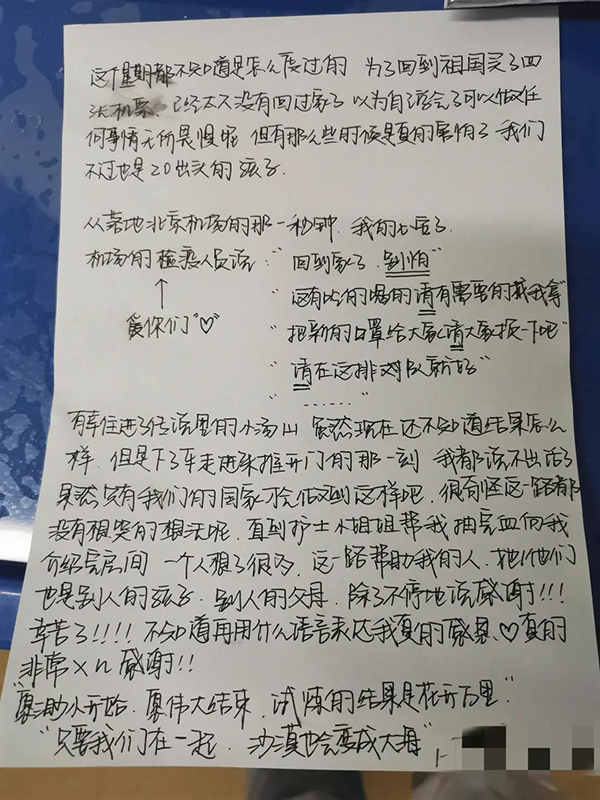 这个星期都不知道是怎么度过的 为了回到祖国买了四
张机票. 已经太久没有回过家了 以为自己学会了可以做任
何事情无所畏惧呢 但有那么些时候是真的害怕了 我们
不过也是20出头的孩子.
从落地北京机场的那一秒钟. 我的心落了
机场的检疫人员说: "回到家了. 别怕"
"还有吃的喝的请有需要的找我拿"
爱你们"♡"
"把新的口罩给大家 请大家换一下吧"
"请在这排好队就好"
"......"
有幸住进了传说里的小汤山 虽然现在还不知道结果怎么
样. 但是下了车走进来推开门的那一刻 我都说不出话了
果然只有我们的国家才会做到这样吧. 很奇怪这一路都
没有想哭的想法呢. 直到护士小姐姐帮我抽完血向我
介绍完房间 一个人想了很多. 这一路帮助我的人. 她/他们
也是别人的孩子. 别人的父母. 除了不停地说感谢!!!
辛苦了!!!! 不知道再用什么语言表达我真的感恩. ♡真的
非常×n 感谢!!
"从渺小开始. 以伟大结束. 试炼的结果是花开万里"
"只要我们在一起. 沙漠也会变成大海"